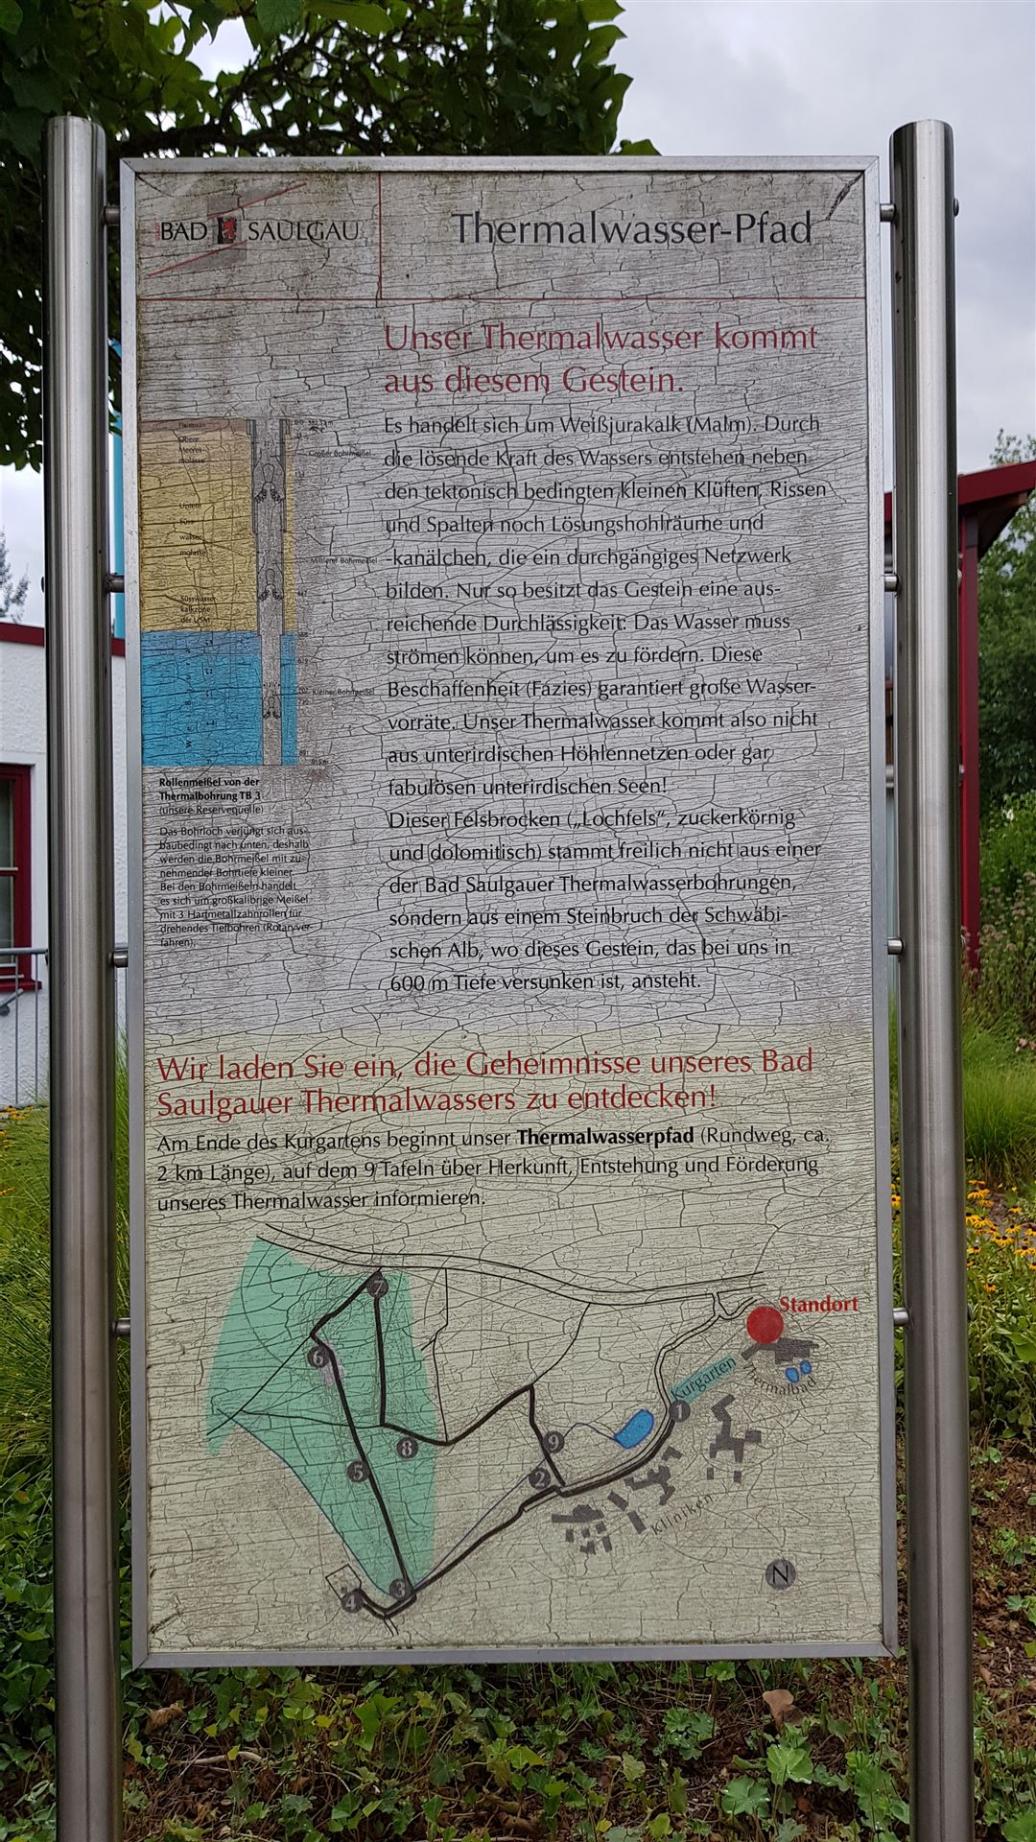 BAD SAULGAU
Thermalwasser-Pfad
Unser Thermalwasser kommt
aus diesem Gestein.
Es handelt sich um Weißjurakalk (Malm). Durch
die lösende Kraft des Wassers entstehen neben
den tektonisch bedingten kleinen Klüften, Rissen
und Spalten noch Lösungshohlräume und
-kanälchen, die ein durchgängiges Netzwerk
bilden. Nur so besitzt das Gestein eine aus-
reichende Durchlässigkeit: Das Wasser muss
strömen können, um es zu fördern. Diese
Beschaffenheit (Fazies) garantiert große Wasser-
vorräte. Unser Thermalwasser kommt also nicht
aus unterirdischen Höhlennetzen oder gar
fabulösen unterirdischen Seen!
Dieser Felsbrocken („Lochfels“, zuckerkörnig
und dolomitisch) stammt freilich nicht aus einer
der Bad Saulgauer Thermalwasserbohrungen,
sondern aus einem Steinbruch der Schwäbi-
schen Alb, wo dieses Gestein, das bei uns in
600 m Tiefe versunken ist, ansteht.
Obere
Meeres
molasse
Großer Bohrmeißel
Untere
Süss
wasser
molasse
Mittlerer Bohrmeißel
Süsswasser
kalkzone
der USM
Kleiner Bohrmeißel
Rollenmeißel von der
Thermalbohrung TB 3
(unsere Reservequelle)
Das Bohrloch verjüngt sich aus-
baubedingt nach unten, deshalb
werden die Bohrmeißel mit zu-
nehmender Bohrtiefe kleiner.
Bei den Bohrmeißeln handelt
es sich um großkalibrige Meißel
mit 3 Hartmetallzahnrollen für
drehendes Tiefbohren (Rotaryver-
fahren).
Wir laden Sie ein, die Geheimnisse unseres Bad
Saulgauer Thermalwassers zu entdecken!
Am Ende des Kurgartens beginnt unser Thermalwasserpfad (Rundweg, ca.
2 km Länge), auf dem 9 Tafeln über Herkunft, Entstehung und Förderung
unseres Thermalwasser informieren.
7
Standort
6
Kurgarten
Thermalbad
1
8
9
5
2
Kliniken
3
4
N